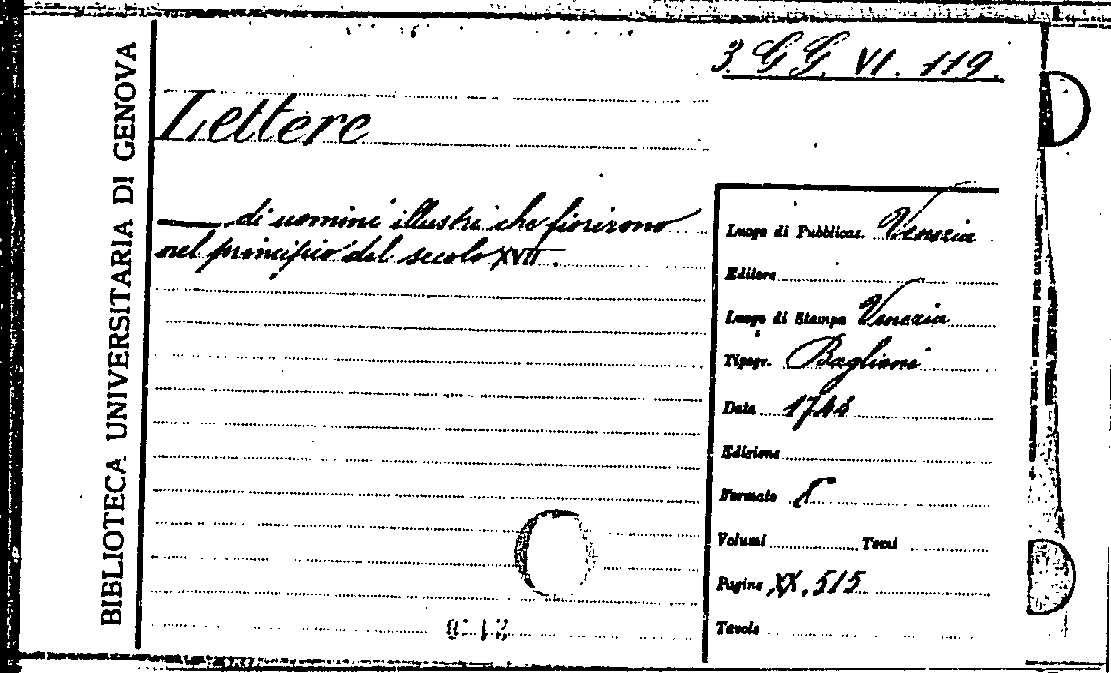 BIBLIOTECA UNIVERSITARIA DI GENOVA
3. GG. VI. 119.
Lettere
—— di uomini illustri che fiorirono
nel principio del secolo XVII.
Luogo di Pubblicaz. Venezia
Editore
Luogo di Stampa Venezia
Tipogr. Baglioni
Data
Edizione
Formato
Volumi Tomi
Pagine XX, 515
Tavole